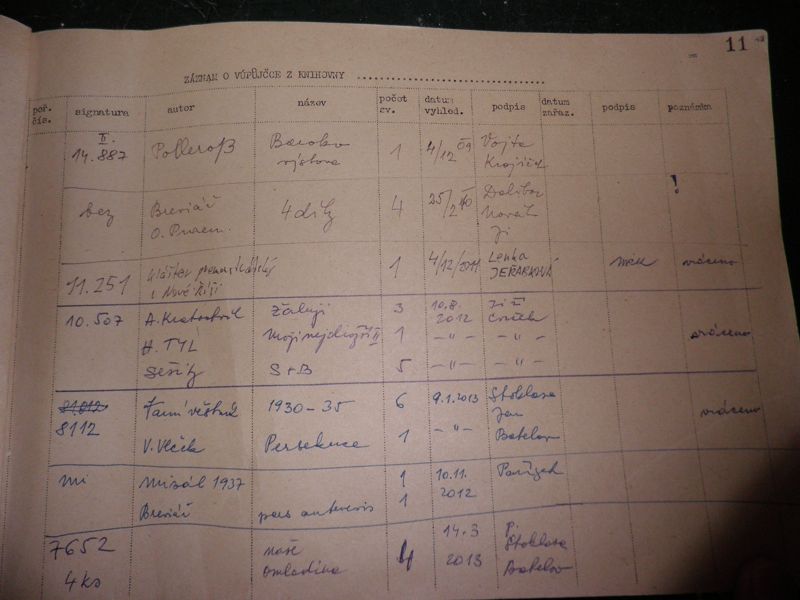 11
ZÁZNAM O VÚPŮJČCE Z KNIHOVNY ..............................
poř. čís. signatura autor název počet sv. datum vyhled. podpis datum zařaz. podpis poznámka
II.
14.887 Polleroß Barokní 1 4/12 09 Vojta
výstava
bez Breviář 4 díly 4 25/2 10 Dalibor !
O. Praem. Novák
Jí
11.251 klášter premonstrátský 1 4/12/2011 Lenka vráceno
v Nové Říši JEŘÁBKOVÁ
10.507 A. Kratochvil Žaluji 3 10.8. Jiří
2012
H. TYL Moji nejdražší II 1 –"– –"– vráceno
Sešity StB 5 –"– –"–
8112 Farní věstník 1930–35 6 9.1.2013 Stoklasa
Jan vráceno
V. Vlček Persekuce 1 –"– Batelov
mi Misál 1937 1 10.11. Pařízek
2012
Breviář pars 1
7652 naše 4 14.3 P.
2013 Stoklasa
4 ks omladina Batelov